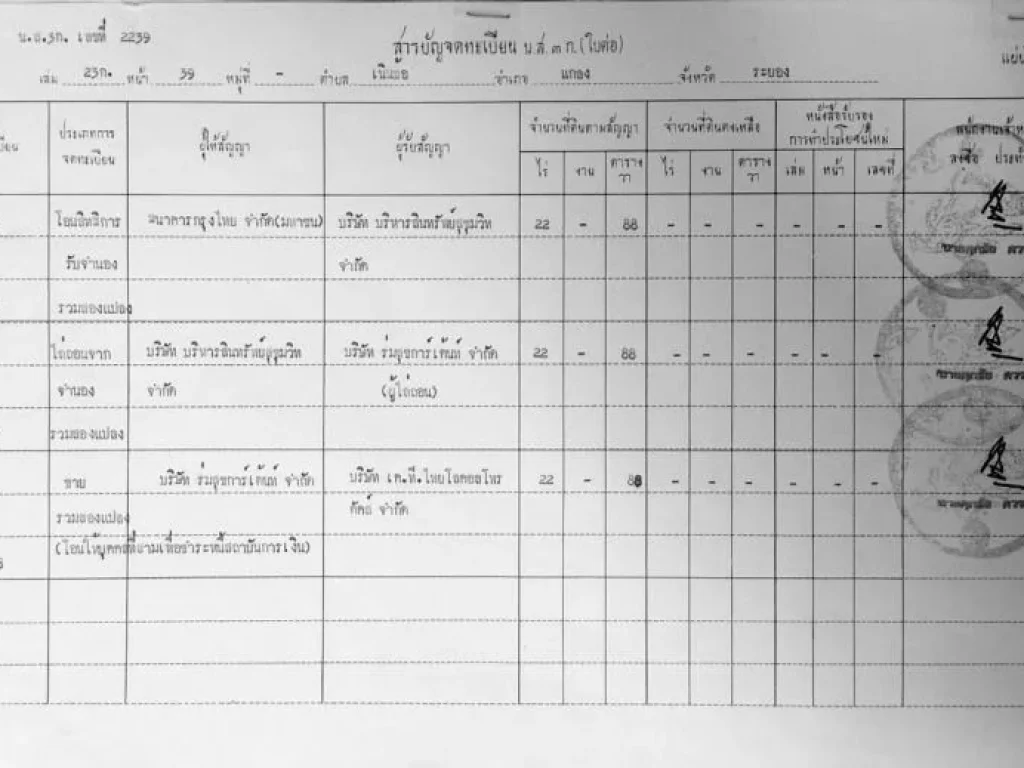 น.ส.3ก. เลขที่ 2239
สารบัญจดทะเบียน น.ส. ๓ ก. (ใบต่อ)
แผ่น
เล่ม 23ก. หน้า 39 หมู่ที่ - ตำบล เนินฆ้อ อำเภอ แกลง จังหวัด ระยอง
ประเภทการจดทะเบียน ผู้ให้สัญญา ผู้รับสัญญา จำนวนที่ดินตามสัญญา จำนวนที่ดินคงเหลือ หนังสือรับรองการทำประโยชน์ใหม่
ไร่ งาน ตารางวา ไร่ งาน ตารางวา เล่ม หน้า เลขที่ ลงชื่อ
โอนสิทธิการ ธนาคารกรุงไทย จำกัด(มหาชน) บริษัท บริหารสินทรัพย์สุขุมวิท 22 - 88 - - - - - -
รับจำนอง จำกัด
รวมสองแปลง
ไถ่ถอนจาก บริษัท บริหารสินทรัพย์สุขุมวิท บริษัท ร่มสุขการ์เด้นท์ จำกัด 22 - 88 - - - - - -
จำนอง จำกัด (ผู้ไถ่ถอน)
รวมสองแปลง
ขาย บริษัท ร่มสุขการ์เด้นท์ จำกัด บริษัท เค.ที.ไทยโลคอลโพร 22 - 88 - - - - - -
รวมสองแปลง ดักส์ จำกัด
(โอนให้บุคคลที่สามเพื่อชำระหนี้สถาบันการเงิน)